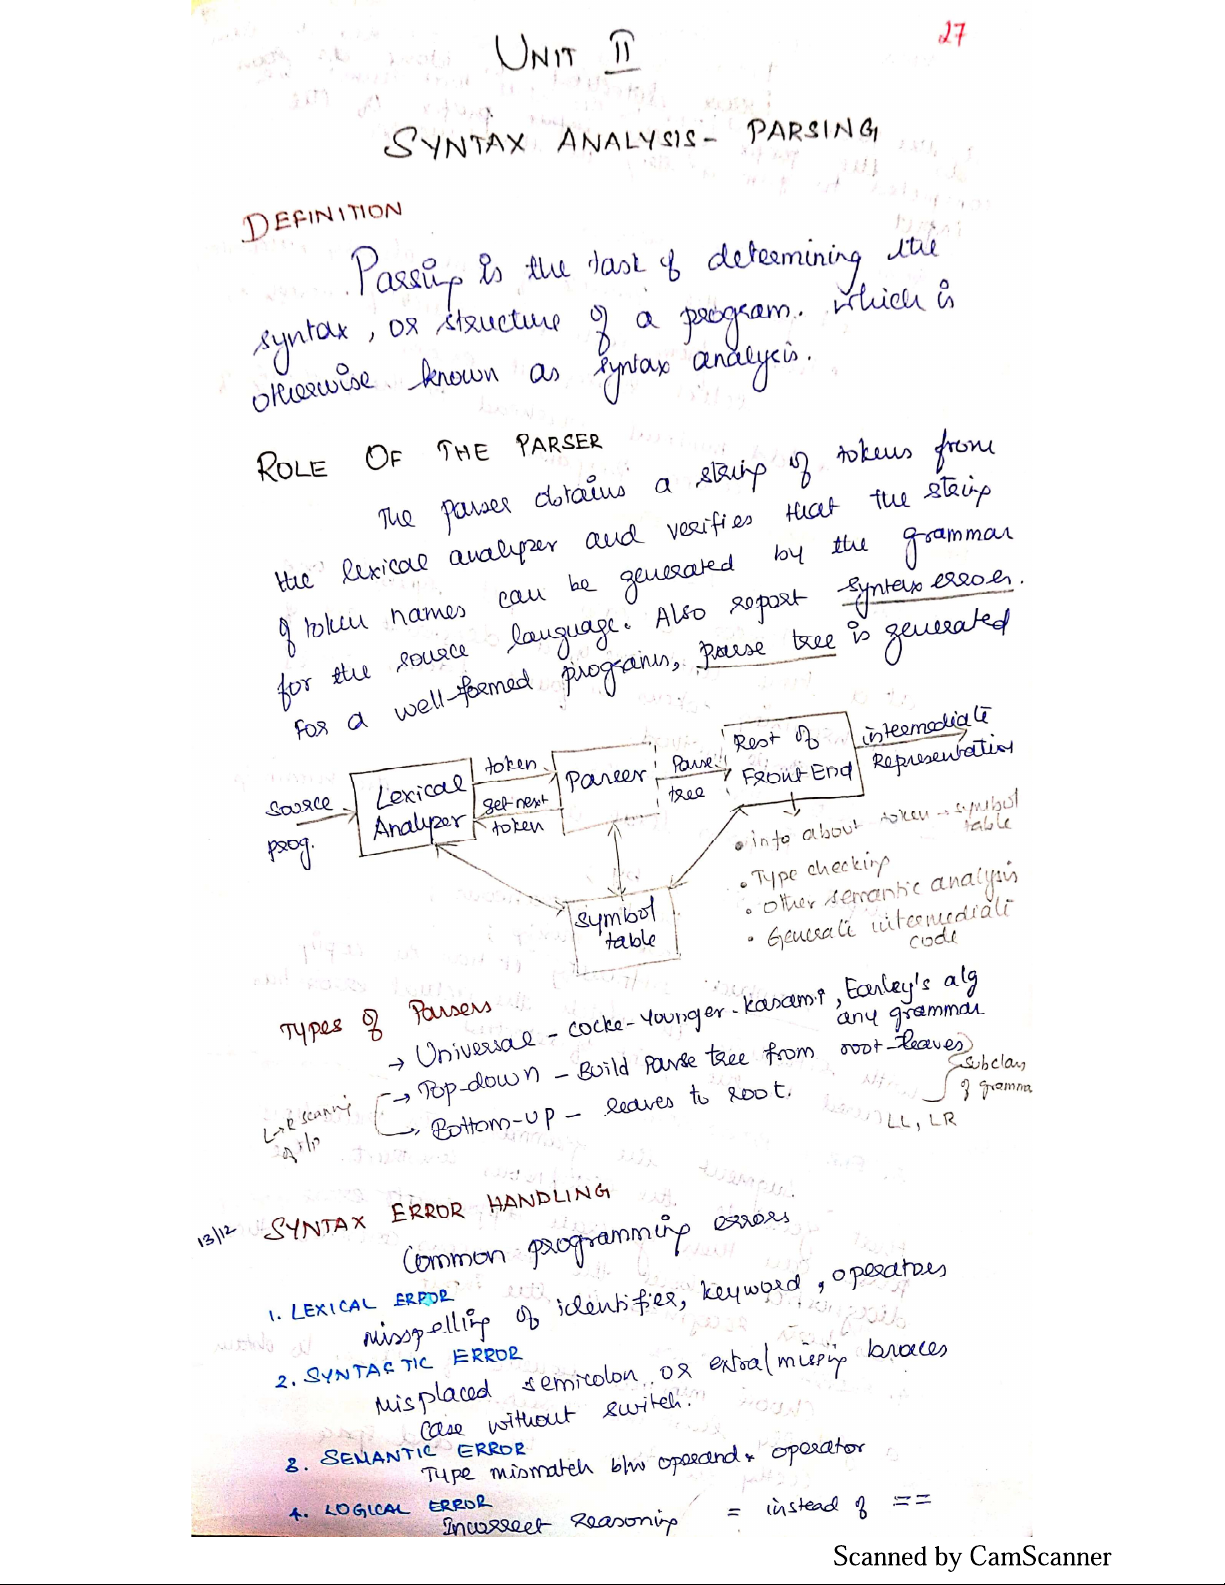 27
UNIT II
SYNTAX ANALYSIS - PARSING
DEFINITION
Parsing is the task of determining the
syntax, or structure of a program. which is
otherwise known as syntax analysis.
ROLE OF THE PARSER
The parser obtains a string of tokens from
the lexical analyzer and verifies that the string
of token names can be generated by the grammar
for the source language. Also report syntax error.
For a well-formed programs, parse tree is generated
Source
prog.
Lexical
Analyzer
token
get next
token
Parser
Parse
tree
Rest of
Front End
intermediate
Representation
Symbol
table
• info about token - symbol
table
• Type checking
• Other semantic analysis
• Generate intermediate
code
Types of Parsers
→ Universal - Cocke-Younger-Kasami, Earley's alg
any grammar
→ Top-down - Build Parse tree from root-leaves
→ Bottom-up - leaves to root.
L→R scanning
of i/p
Subclass
of grammar
LL, LR
13/12
SYNTAX ERROR HANDLING
Common programming errors
1. LEXICAL ERROR
Misspelling of identifier, keyword, operators
2. SYNTACTIC ERROR
Misplaced semicolon or extra/missing braces
Case without switch.
3. SEMANTIC ERROR
Type mismatch b/w operand & operator
4. LOGICAL ERROR
Incorrect reasoning = instead of ==
Scanned by CamScanner